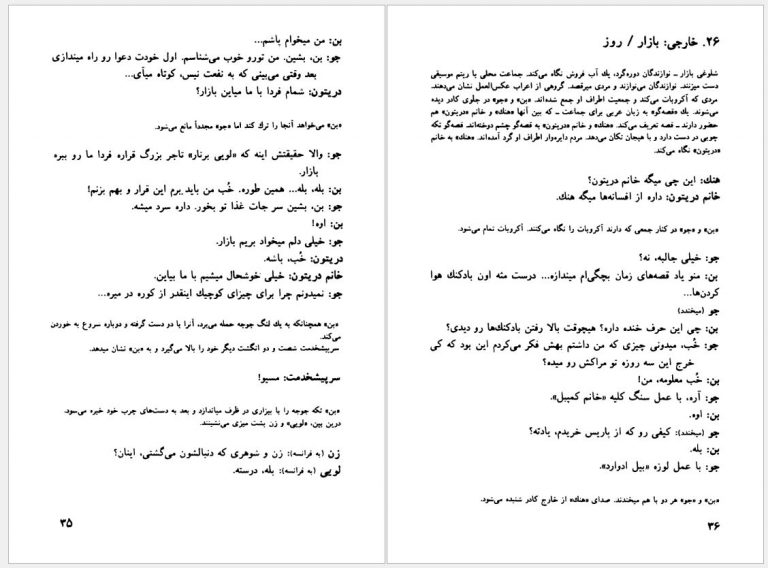 بن: من میخوام باشم...
جو: بن، بشین. من تورو خوب می‌شناسم. اول خودت دعوا رو راه میندازی
بعد وقتی می‌بینی که به نفعت نیس، کوتاه میآی...
دریتون: شمام فردا با ما میاین بازار؟
«بن» می‌خواهد آنجا را ترك كند اما «جو» مجدداً مانع می‌شود.
جو: والا حقیقتش اینه که «لویی برنار» تاجر بزرگ قراره فردا ما رو ببره
بازار.
بن: بله، بله... همین طوره. خُب من باید برم این قرار و بهم بزنم!
جو: بن، بشین سر جات غذا تو بخور. داره سرد میشه.
بن: اوه!
جو: خیلی دلم میخواد بریم بازار.
دریتون: خُب، باشه.
خانم دریتون: خیلی خوشحال میشیم با ما بیاین.
جو: نمیدونم چرا برای چیزای کوچیك اینقدر از کوره در میره...
«بن» همچنانکه به یك لنگ جوجه حمله می‌برد، آنرا با دو دست گرفته و دوباره شروع به خوردن
می‌کند.
سرپیشخدمت شصت و دو انگشت دیگر خود را بالا می‌گیرد و به «بن» نشان میدهد.
سرپیشخدمت: مسیو!
«بن» تکه جوجه را با بیزاری در ظرف میاندازد و بعد به دست‌های چرب خود خیره می‌شود.
درین بین، «لویی» و زن پشت میزی می‌نشینند.
زن (به فرانسه): زن و شوهری که دنبالشون می‌گشتی، اینان؟
لویی (به فرانسه): بله، درسته.
۳۵
۲۶. خارجی: بازار / روز
شلوغی بازار ــ نوازندگان دوره‌گرد، یك آب فروش نگاه می‌کند. جماعت محلی با ریتم موسیقی
دست میزنند. نوازندگان می‌نوازند و مردی میرقصد. گروهی از اعراب عکس‌العمل نشان می‌دهند.
مردی که آکروبات می‌کند و جمعیت اطراف او جمع شده‌اند. «بن» و «جو» در جلوی کادر دیده
می‌شوند. یك «قصه‌گو» به زبان عربی برای جماعت ــ که بین آنها «هنك» و خانم «دریتون» هم
حضور دارند ــ قصه تعریف می‌کند. «هنك» و خانم «دریتون» به قصه‌گو چشم دوخته‌اند. قصه‌گو تکه
چوبی در دست دارد و با هیجان تکان می‌دهد. مردم دایره‌وار اطراف او گرد آمده‌اند. «هنك» به خانم
«دریتون» نگاه می‌کند.
هنك: این چی میگه خانم دریتون؟
خانم دریتون: داره از افسانه‌ها میگه هنك.
«بن» و «جو» در کنار جمعی که دارند آکروبات را نگاه می‌کنند. آکروبات تمام می‌شود.
جو: خیلی جالبه، نه؟
بن: منو یاد قصه‌های زمان بچگی‌ام میندازه... درست مثه اون بادکنك هوا
کردن‌ها...
جو (میخندد)
بن: چی این حرف خنده داره؟ هیچوقت بالا رفتن بادکنك‌ها رو دیدی؟
جو: خُب، میدونی چیزی که من داشتم بهش فکر می‌کردم این بود که کی
خرج این سه روزه تو مراکش رو میده؟
بن: خُب معلومه، من!
جو: آره، با عمل سنگ کلیه «خانم کمپبل».
بن: اوه.
جو (میخندد): کیفی رو که از پاریس خریدم، یادته؟
بن: بله.
جو: با عمل لوزه «بیل ادوارد».
«بن» و «جو» هر دو با هم میخندند. صدای «هنك» از خارج کادر شنیده می‌شود.
۳۶